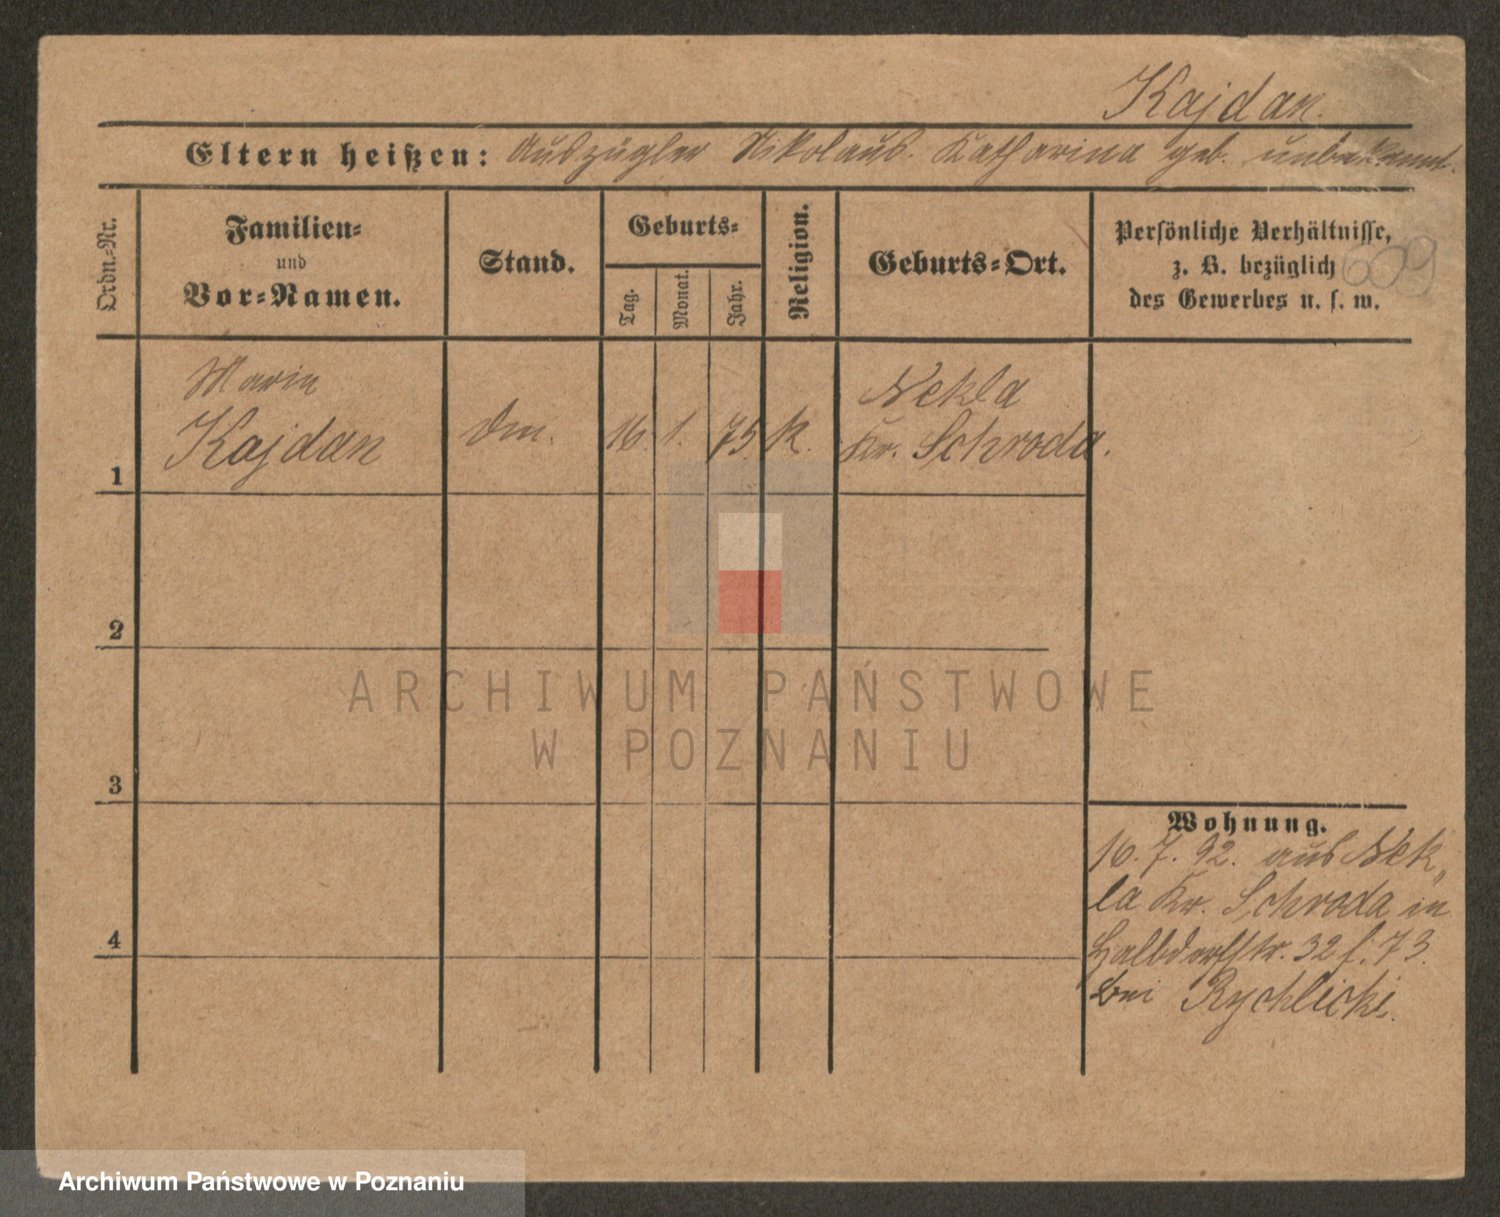 Kajdan.
Eltern heißen: Auszügler Nikolaus. Katharina geb. unbekannt.
Ordn.-Nr.
Familien-
und
Vor-Namen.
Stand.
Geburts-
Tag.
Monat.
Jahr.
Religion.
Geburts-Ort.
Persönliche Verhältnisse,
z. B. bezüglich
des Gewerbes u. s. w.
609
Marie
Kajdan
16. 1. 75. k.
Nekla
Kr. Schroda.
1
2
3
4
Wohnung.
16. 7. 92. aus Nek„
la Kr. Schroda in
Halbdorfstr. 32 f. 73.
bei Rychlicki.
ARCHIWUM PAŃSTWOWE
W POZNANIU
Archiwum Państwowe w Poznaniu